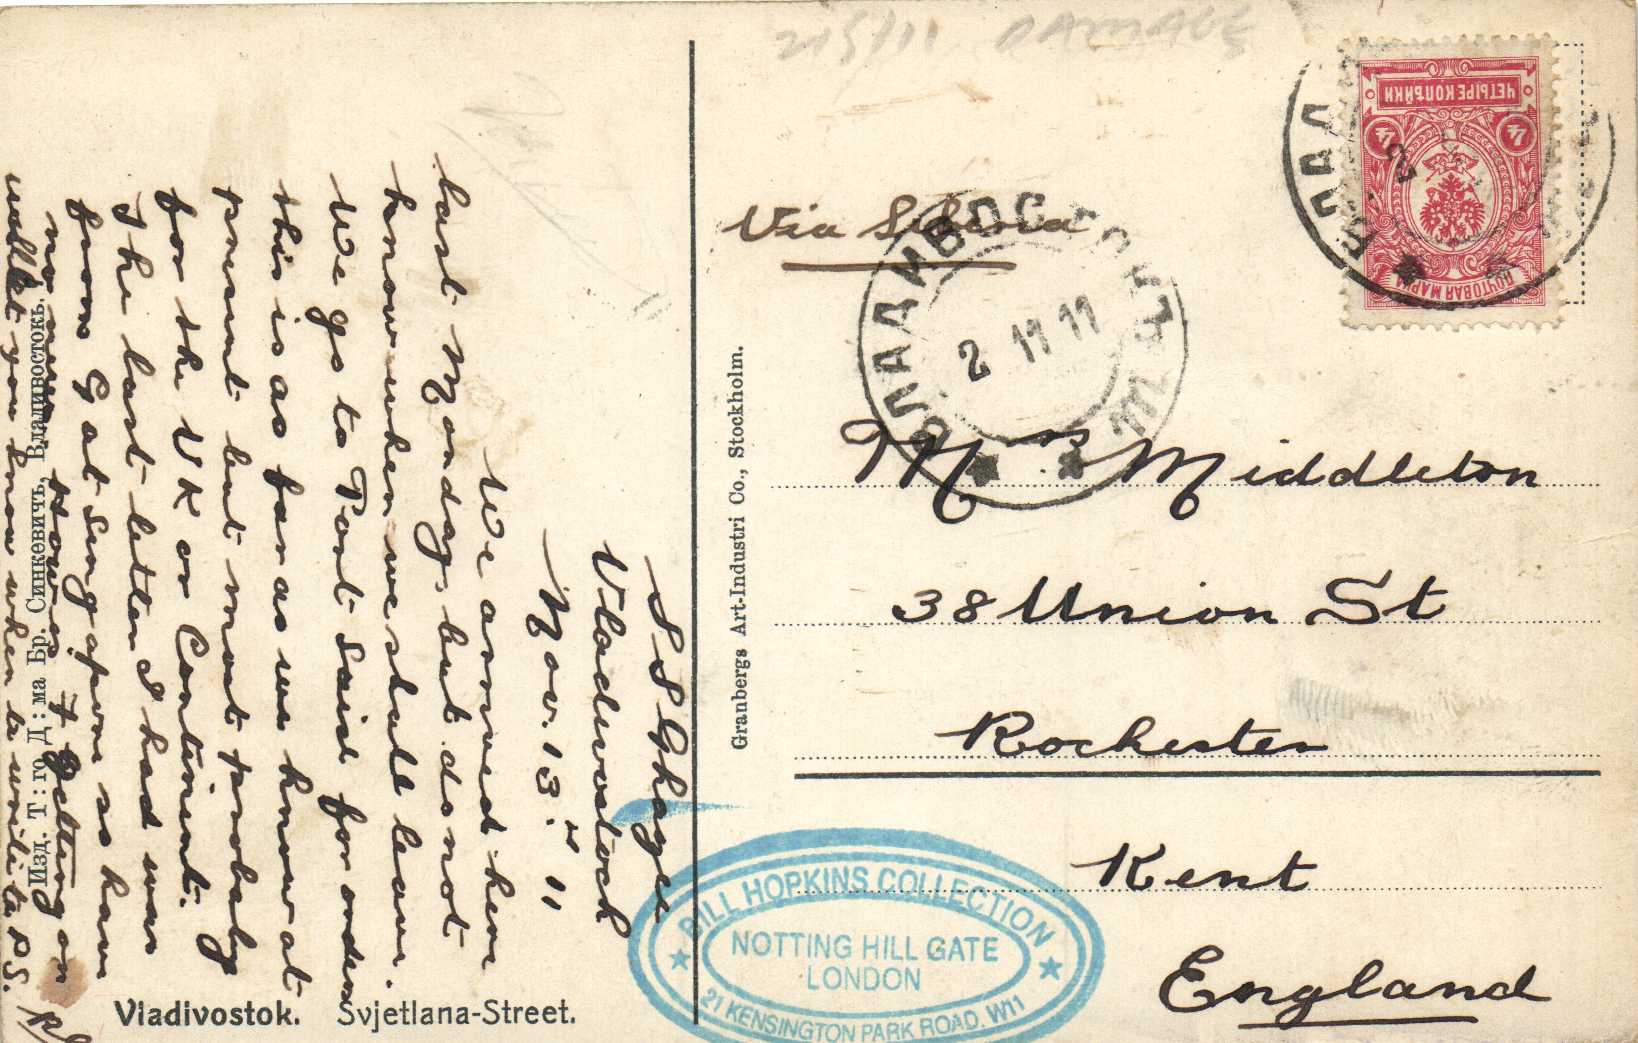 215/11 DAMAGE
Via Siberia
ВЛАДИВОСТОКЪ
2 11 11
ВЛАД
ЧЕТЫРЕ КОПѢЙКИ
4 4
ПОЧТОВАЯ МАРКА
Mrs Middleton
38 Union St
Rochester
Kent
England
SS Ghazee
Vladivostock
Nov. 13th 11
We arrived here
last Monday, but do not
know when we shall leave.
We go to Port Said for orders
this is as far as we know at
present but most probably
for the UK or Continent.
The last letter I had was
from G at Singapore so have
no news. How is F getting on
will let you know when to write to P.S.
Granbergs Art-Industri Co., Stockholm.
Изд. Т:го Д:ма Бр. Синкевичъ, Владивостокъ.
Vladivostok. Svjetlana-Street.
BILL HOPKINS COLLECTION
NOTTING HILL GATE
LONDON
21 KENSINGTON PARK ROAD. W11